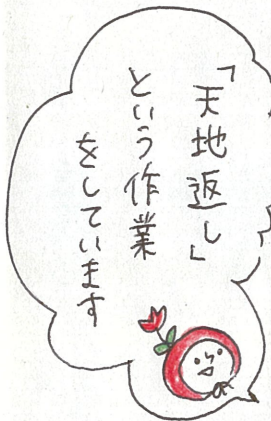 「天地返し」
という作業
をしています